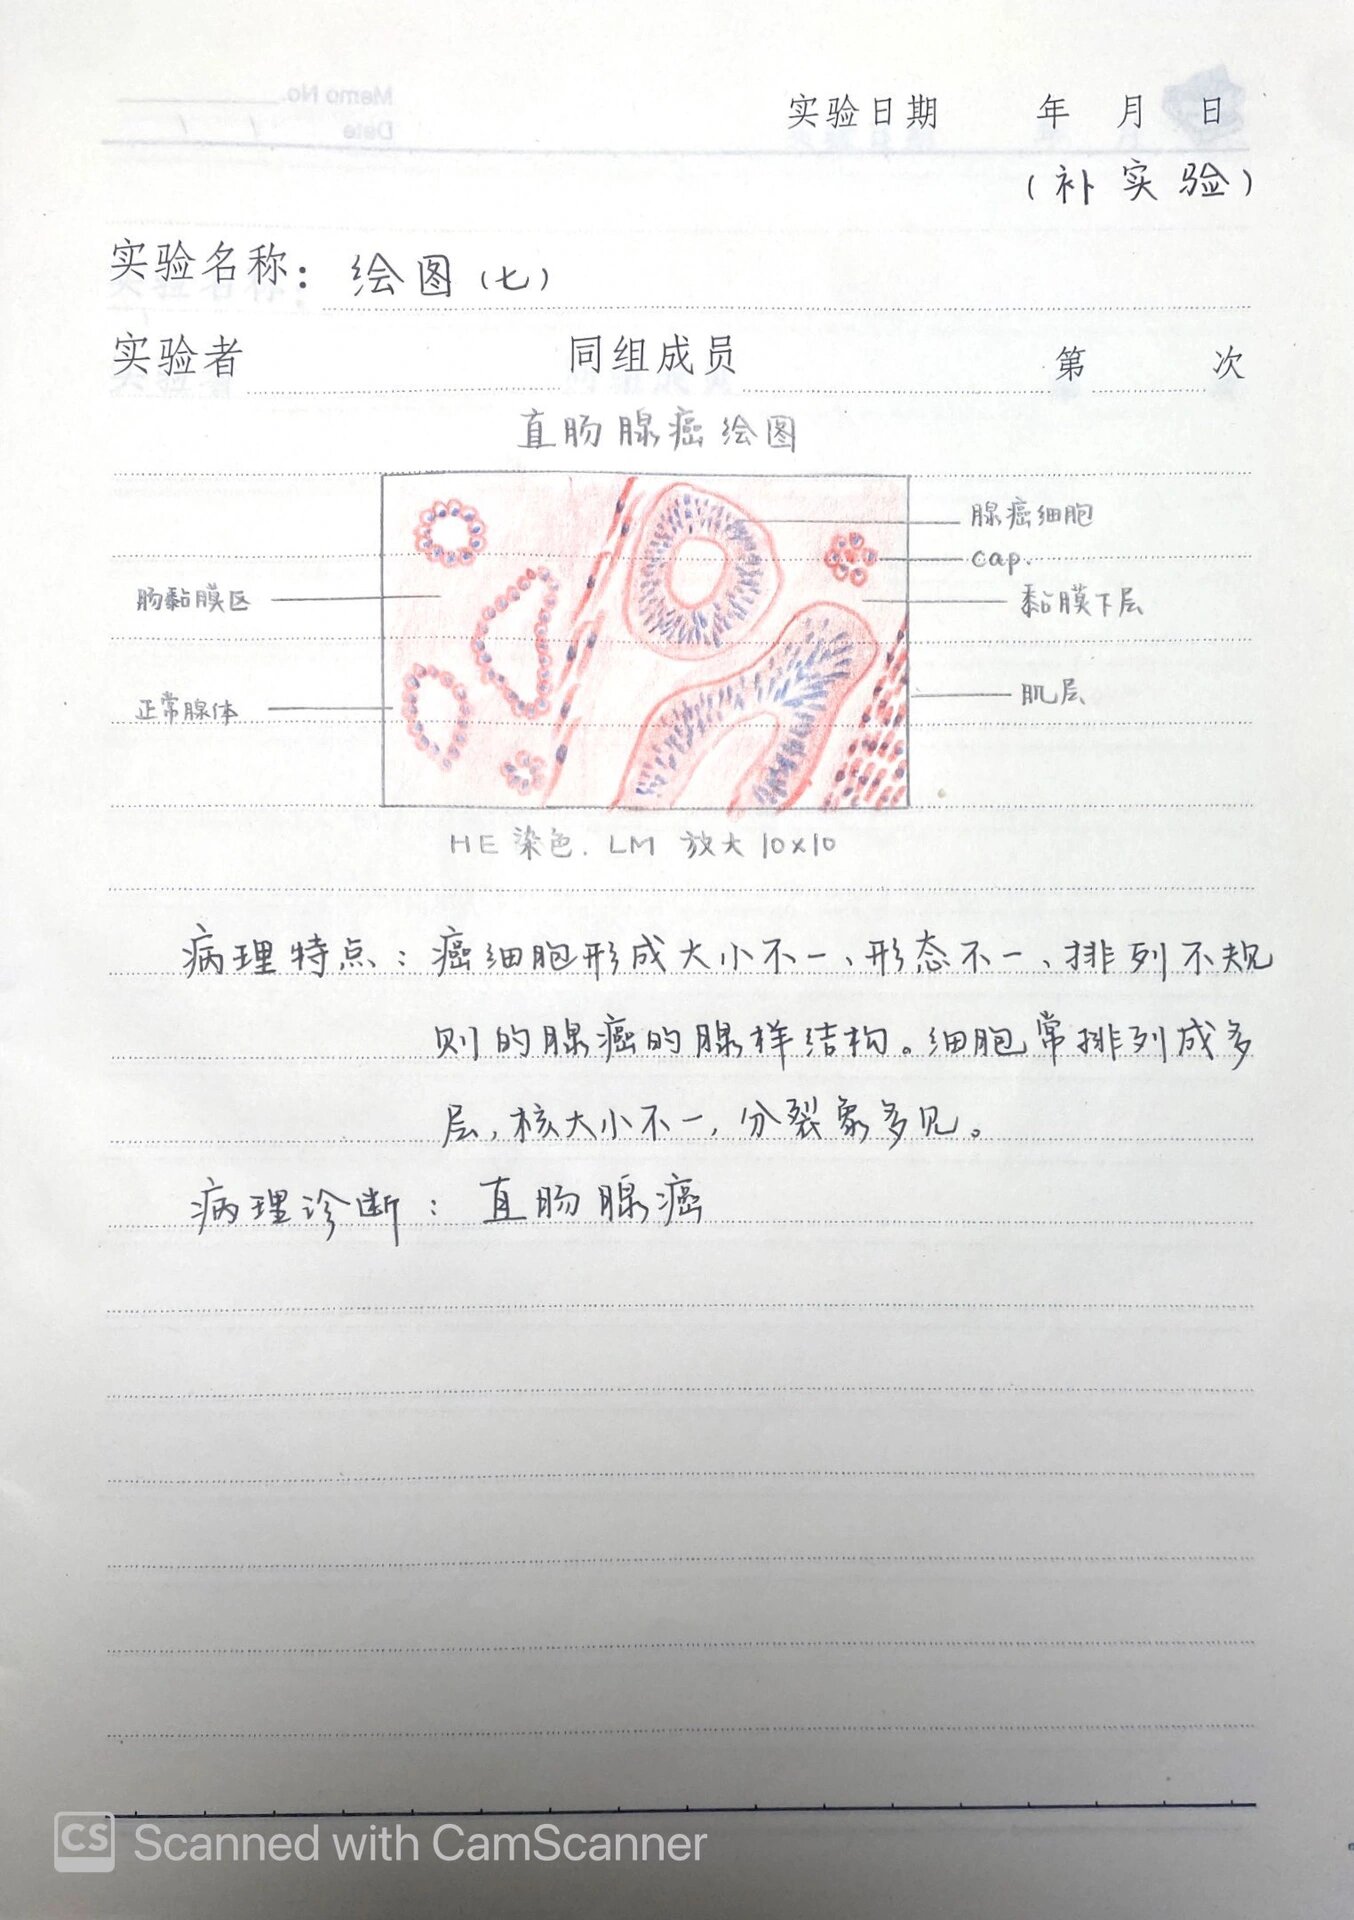 实验日期 年 月 日
(补实验)
实验名称: 绘图(七)
实验者 同组成员 第 次
直肠腺癌绘图
腺癌细胞
cap.
肠黏膜区
黏膜下层
肌层
正常腺体
HE染色. LM 放大10×10
病理特点:癌细胞形成大小不一、形态不一、排列不规
则的腺癌的腺样结构。细胞常排列成多
层,核大小不一,分裂象多见。
病理诊断:直肠腺癌
CS Scanned with CamScanner